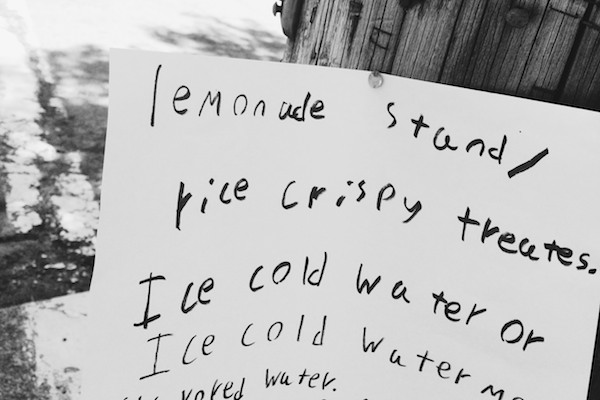 lemonade stand/
rice crispy treates.
Ice cold water or
Ice cold water
vored water.